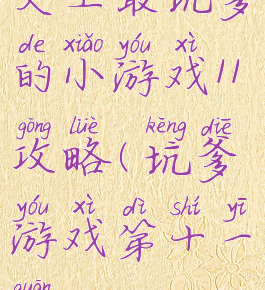 史上最坑爹
de xiǎo yóu xì
的小游戏11
gōng lüè kēng diē
攻略(坑爹
yóu xì dì shí yī
游戏第十一
guān